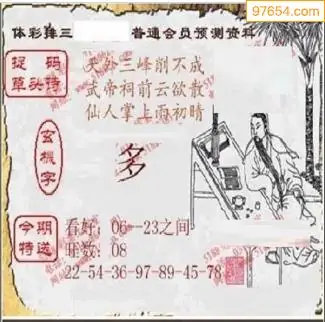 97654.com
体彩排三 普通会员预测资料
捉码
草头诗
天外三峰削不成
武帝祠前云欲散
仙人掌上雨初晴
玄机字
多
今期
特送
看好：06--23之间
旺数：08
22-54-36-97-89-45-78